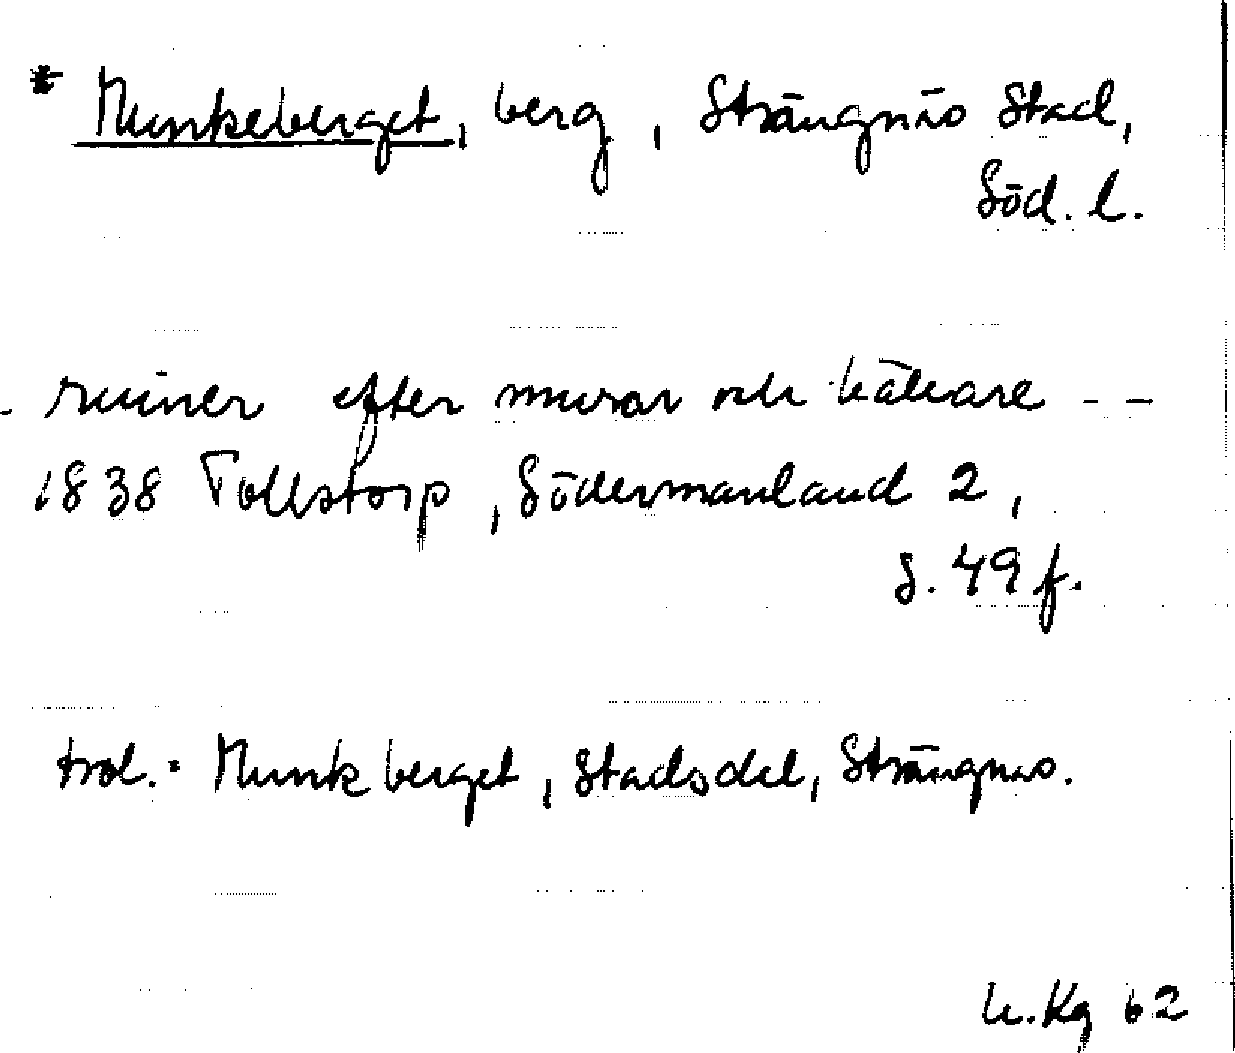 * Munkeberget, berg, Strängnäs stad,
Söd. l.
- ruiner efter murar och källare - -
1838 Tollstorp, Södermanland 2,
s. 49 f.
trol. = Munkberget, stadsdel, Strängnäs.
Kg 62